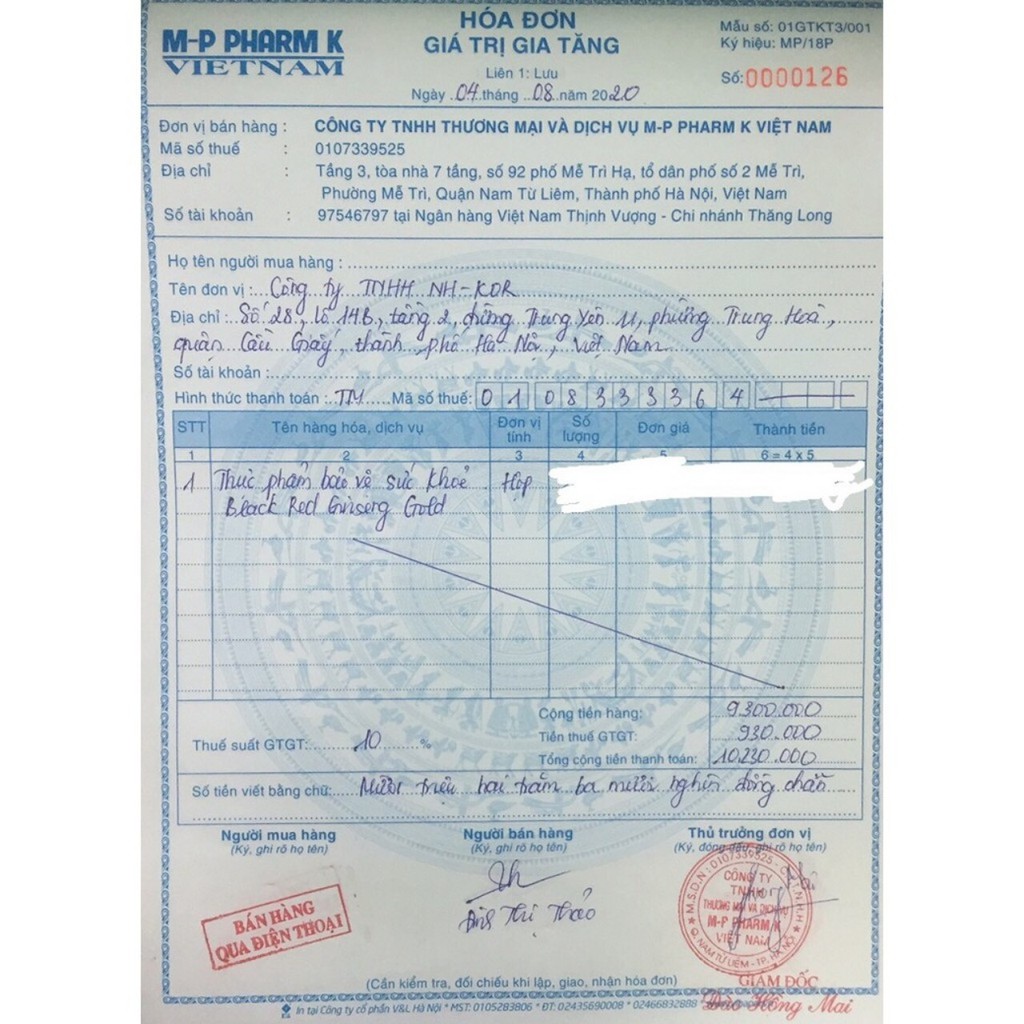 M-P PHARM K
VIETNAM
HÓA ĐƠN
GIÁ TRỊ GIA TĂNG
Liên 1: Lưu
Ngày 04 tháng 08 năm 2020
Mẫu số: 01GTKT3/001
Ký hiệu: MP/18P
Số: 0000126
Đơn vị bán hàng : CÔNG TY TNHH THƯƠNG MẠI VÀ DỊCH VỤ M-P PHARM K VIỆT NAM
Mã số thuế : 0107339525
Địa chỉ : Tầng 3, tòa nhà 7 tầng, số 92 phố Mễ Trì Hạ, tổ dân phố số 2 Mễ Trì,
Phường Mễ Trì, Quận Nam Từ Liêm, Thành phố Hà Nội, Việt Nam
Số tài khoản : 97546797 tại Ngân hàng Việt Nam Thịnh Vượng - Chi nhánh Thăng Long
Họ tên người mua hàng :
Tên đơn vị : Công ty TNHH NH-KOR
Địa chỉ : Số 28, lô 14B, tầng 2, đường Trung Yên 11, phường Trung Hoà,
quận Cầu Giấy, thành phố Hà Nội, Việt Nam
Số tài khoản :
Hình thức thanh toán : TM Mã số thuế: 0108333364
STT Tên hàng hóa, dịch vụ Đơn vị tính Số lượng Đơn giá Thành tiền
1 2 3 4 5 6 = 4 x 5
1 Thực phẩm bảo vệ sức khoẻ Hộp
Black Red Ginseng Gold
Cộng tiền hàng: 9300.000
Thuế suất GTGT: 10 % Tiền thuế GTGT: 930.000
Tổng cộng tiền thanh toán: 10230.000
Số tiền viết bằng chữ: Mười triệu hai trăm ba mươi nghìn đồng chẵn
Người mua hàng Người bán hàng Thủ trưởng đơn vị
(Ký, ghi rõ họ tên) (Ký, ghi rõ họ tên) (Ký, đóng dấu, ghi rõ họ tên)
BÁN HÀNG
QUA ĐIỆN THOẠI
Đinh Thị Thảo
M.S.D.N: 0107339525 - C.T.T.N.H.H
CÔNG TY
TNHH
THƯƠNG MẠI VÀ DỊCH VỤ
M-P PHARM K
VIỆT NAM
Q. NAM TỪ LIÊM - TP. HÀ NỘI
GIÁM ĐỐC
Đào Hồng Mai
(Cần kiểm tra, đối chiếu khi lập, giao, nhận hóa đơn)
In tại Công ty cổ phần V&L Hà Nội * MST: 0105283806 * ĐT: 02435690008 - 02466832888